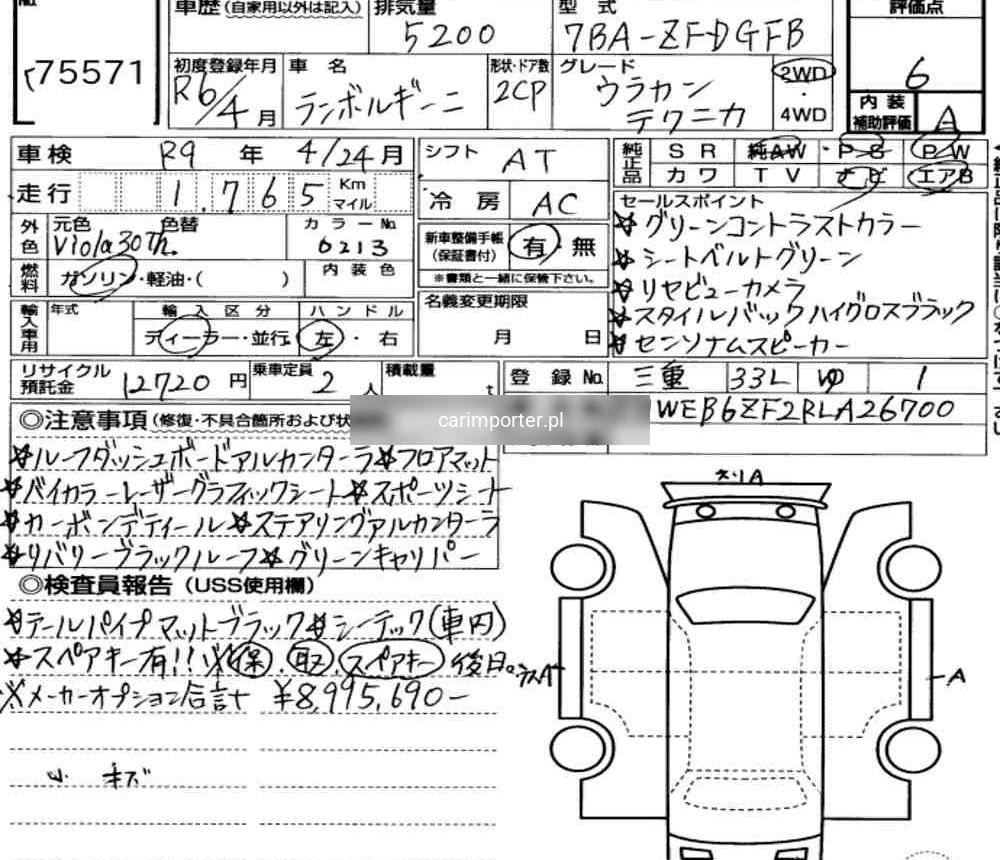 No.
車歴 (自家用以外は記入) 排気量 型式 評価点
75571 5200 7BA-ZFDGFB 6
初度登録年月 車名 形状・ドア数 グレード 2WD・4WD
R6/4月 ランボルギーニ 2CP ウラカン テクニカ
内装補助評価 A
車検 R9年 4/24月 シフト AT 純正品 SR 純AW・P S P W
走行 1,765 Km マイル 冷房 AC カワ TV ナビ エアB
外色 元色 色替 カラーNo. 新車整備手帳(保証書付) 有・無
Viola30Th. 6213
燃料 ガソリン・軽油・( ) 内装色 ※書類と一緒に保管下さい。
セールスポイント
☆グリーンコントラストカラー
☆シートベルトグリーン
☆リヤビューカメラ
☆スタイルパックハイグロスブラック
☆センソナムスピーカー
輸入車用 年式 輸入区分 ハンドル 名義変更期限
ディーラー・並行 左・右 月 日
リサイクル預託金 12720円 乗車定員 2人 積載量 t 登録No. 三重 33L ゆ 1
◎注意事項 (修復・不具合箇所および状
carimporter.pl
WEB6ZF2RLA26700
☆ルーフダッシュボードアルカンターラ☆フロアマット
☆バイカラーレザーグラフィックシート☆スポーツシート
☆カーボンディティール☆ステアリングアルカンターラ
☆リバリーブラックルーフ☆グリーンキャリパー
◎検査員報告 (USS使用欄)
☆テールパイプマットブラック☆シーテック(車内)
☆スペアキー有!! ※保.取.スペアキー後日。
※メーカーオプション合計 ¥8,995,690-
小キズ
A
A
A